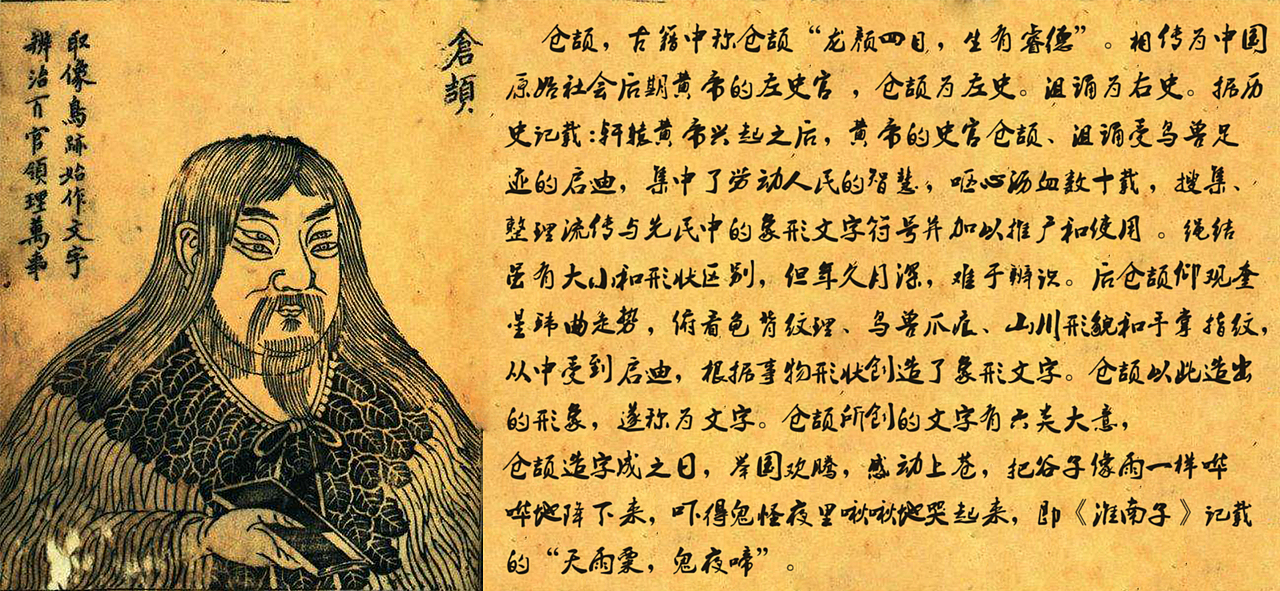 倉頡
取像鳥跡始作文字
辨治百官領理萬事
仓颉，古籍中称仓颉“龙颜四目，生有睿德”。相传为中国
原始社会后期黄帝的左史官 ，仓颉为左史。沮诵为右史。据历
史记载:轩辕黄帝兴起之后，黄帝的史官仓颉、沮诵受鸟兽足
迹的启迪，集中了劳动人民的智慧，呕心沥血数十载，搜集、
整理流传与先民中的象形文字符号并加以推广和使用 。绳结
虽有大小和形状区别，但年久月深，难于辨识。后仓颉仰观奎
星环曲走势，俯看龟背纹理、鸟兽爪痕、山川形貌和手掌指纹，
从中受到启迪，根据事物形状创造了象形文字。仓颉以此造出
的形象，遂称为文字。仓颉所创的文字有六类大意，
仓颉造字成之日，举国欢腾，感动上苍，把谷子像雨一样哗
哗地降下来，吓得鬼怪夜里啾啾地哭起来，即《淮南子》记载
的“天雨粟，鬼夜啼”。